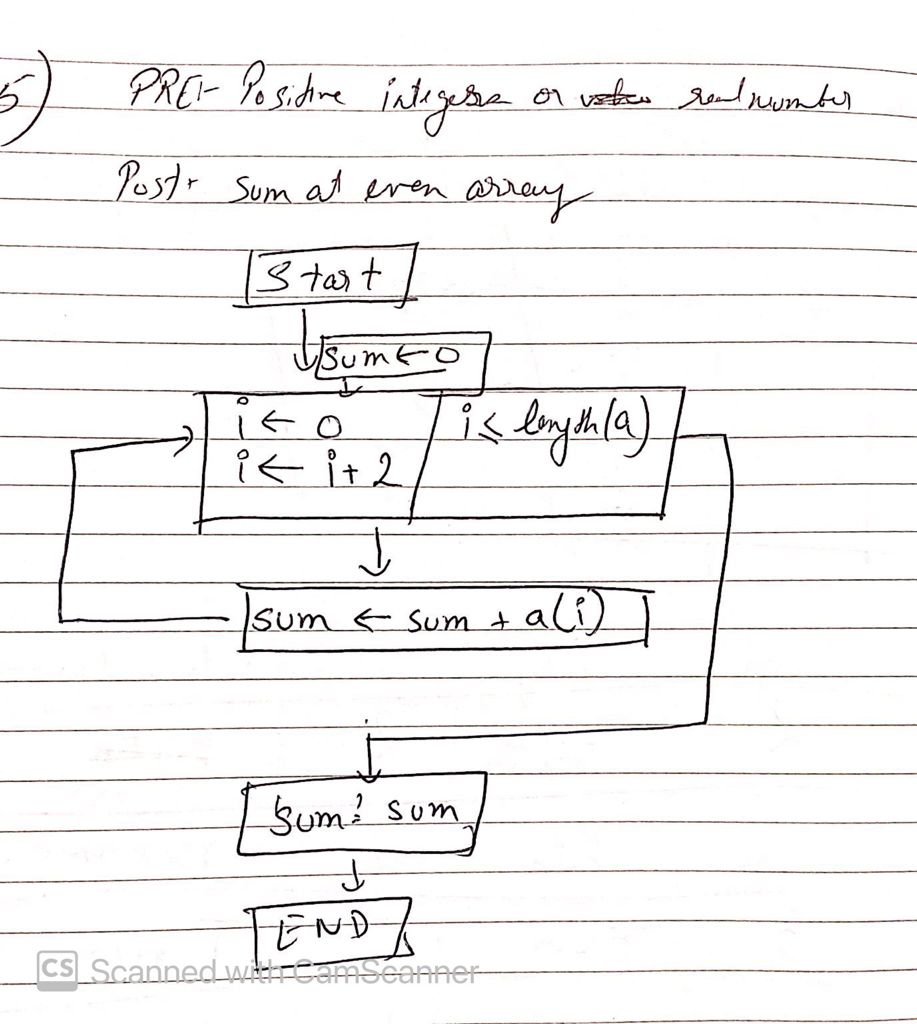 5)
PRE:- Positive integers or real number
Post:- Sum at even array
Start
sum ← 0
i ← 0
i ← i + 2
i ≤ length(a)
sum ← sum + a(i)
Sum: sum
END
CS Scanned with CamScanner